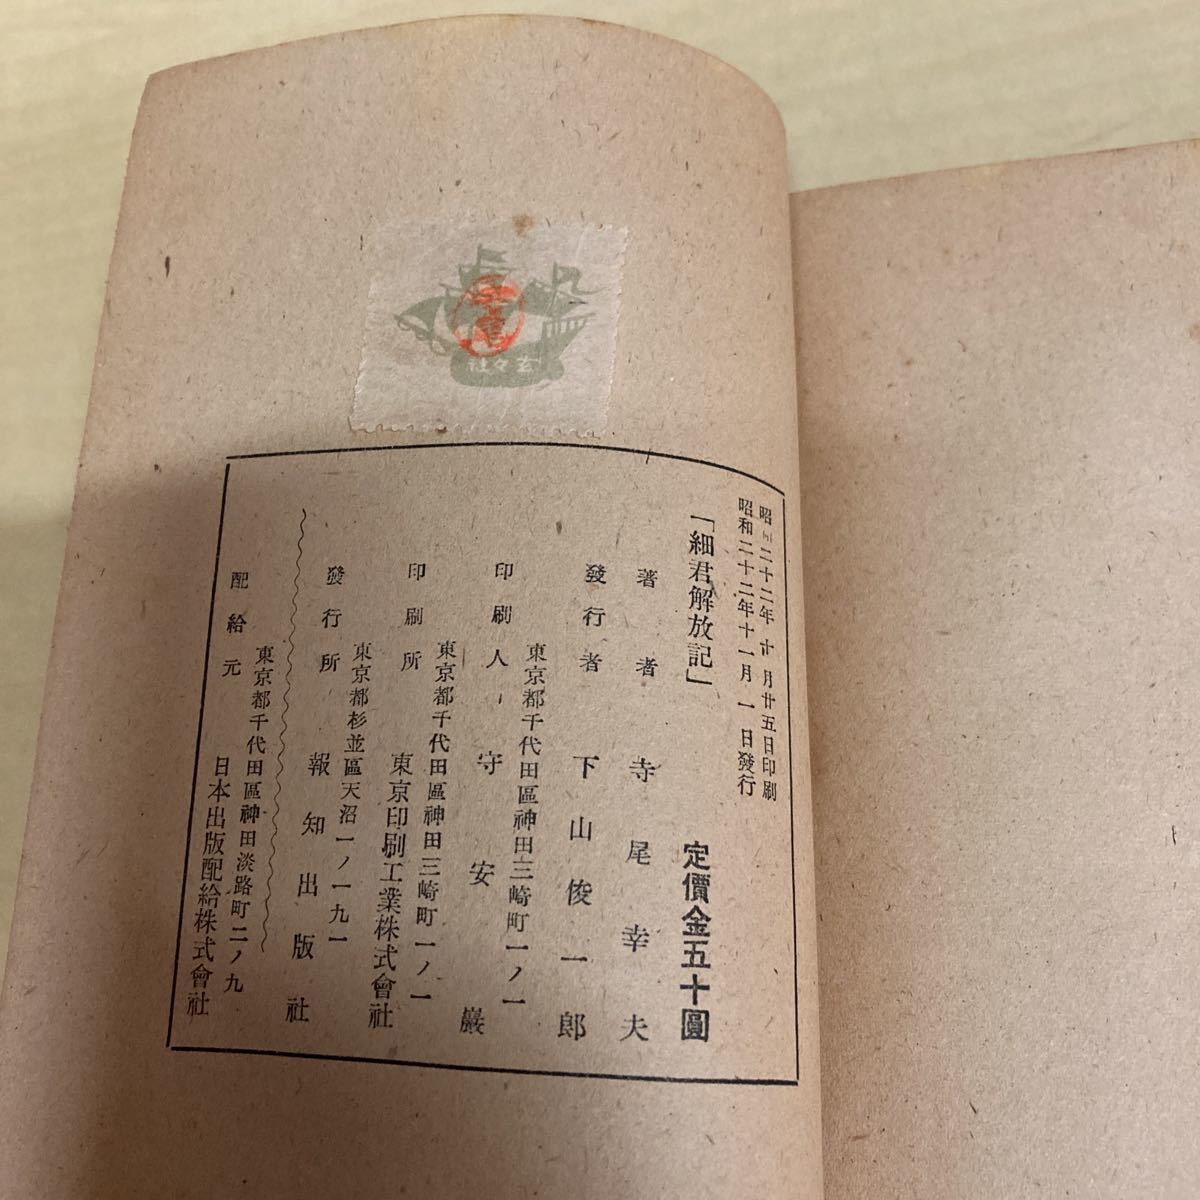 玄々社
昭 二十二年 廿 月廿五日印刷
昭和二十二年十一月 一 日發行
「細君解放記」 定價金五十圓
著者 寺尾幸夫
發行者 下山俊一郎
東京都千代田區神田三崎町一ノ一
印刷人 守安巖
東京都千代田區神田三崎町一ノ一
印刷所 東京印刷工業株式會社
東京都杉並區天沼一ノ一九一
發行所 報知出版社
東京都千代田區神田淡路町二ノ九
配給元 日本出版配給株式會社